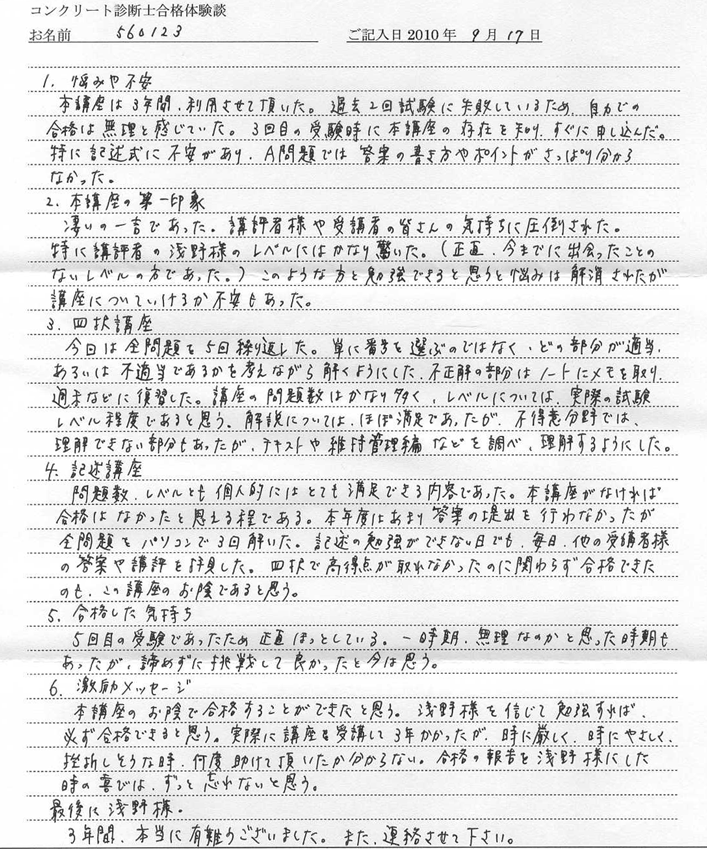 コンクリート診断士合格体験談
お名前 560123 ご記入日 2010年 9月17日
1. 悩みや不安
本講座は3年間、利用させて頂いた。過去2回試験に失敗しているため、自力での
合格は無理と感じていた。3回目の受験時に本講座の存在を知り、すぐに申し込んだ。
特に記述式に不安があり、A問題では答案の書き方やポイントがさっぱり分から
なかった。
2. 本講座の第一印象
凄いの一言であった。講評者様や受講者の皆さんの気持ちに圧倒された。
特に講評者の浅野様のレベルにはかなり驚いた。(正直、今までに出会ったことの
ないレベルの方であった。)このような方と勉強できると思うと悩みは解消されたが
講座についていけるか不安もあった。
3. 四択講座
今回は全問題を5回繰り返した。単に番号を選ぶのではなく、どの部分が適当、
あるいは不適当であるかを考えながら解くようにした。不正解の部分はノートにメモを取り、
週末などに復習した。講座の問題数はかなり多く、レベルについては、実際の試験
レベル程度であると思う。解説については、ほぼ満足であったが、不得意分野では、
理解できない部分もあったが、テキストや維持管理編などを調べ、理解するようにした。
4. 記述講座
問題数、レベルとも個人的にはとても満足できる内容であった。本講座がなければ
合格はなかったと思える程である。本年度はあまり答案の提出を行わなかったが
全問題をパソコンで3回解いた。記述の勉強ができない日でも、毎日、他の受講者様
の答案や講評を拝見した。四択で高得点が取れなかったのに関わらず合格できた
のも、この講座のお陰であると思う。
5. 合格した気持ち
5回目の受験であったため正直ほっとしている。一時期、無理なのかと思った時期も
あったが、諦めずに挑戦して良かったと今は思う。
6. 激励メッセージ
本講座のお陰で合格することができたと思う。浅野様を信じて勉強すれば、
必ず合格できると思う。実際に講座を受講して3年かかったが、時に厳しく、時にやさしく、
挫折しそうな時、何度助けて頂いたか分からない。合格の報告を浅野様にした
時の喜びは、ずっと忘れないと思う。
最後に浅野様。
3年間、本当に有難うございました。また、連絡させて下さい。